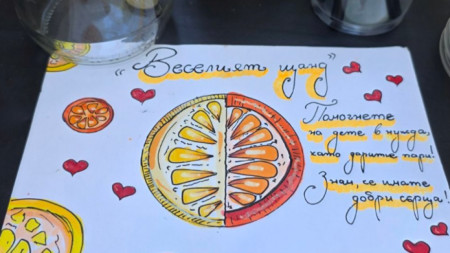 "Веселият щанд"
Помогнете
на дете в нужда,
като дарите пари!
Знам, се имате
добри сърца!